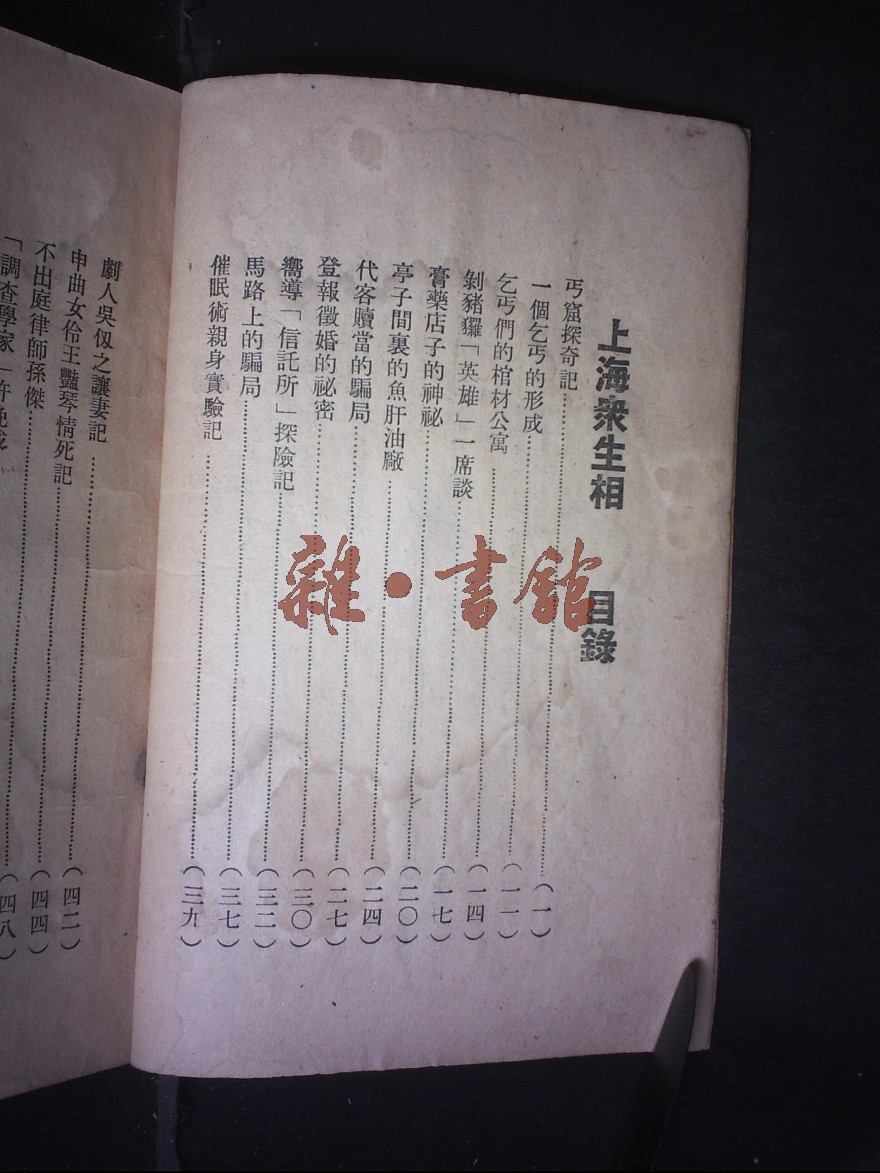 上海衆生相 目錄
丐窟探奇記（一）
一個乞丐的形成（一一）
乞丐們的棺材公寓（一四）
剝豬玀「英雄」一席談（一七）
膏藥店子的神祕（二〇）
亭子間裏的魚肝油廠（二四）
代客贖當的騙局（二七）
登報徵婚的祕密（三〇）
嚮導「信託所」探險記（三二）
馬路上的騙局（三七）
催眠術親身實驗記（三九）
劇人吳仭之讓妻記（四二）
申曲女伶王豔琴情死記（四四）
不出庭律師孫傑（四八）
「調查學家」許晚成
雜·書館